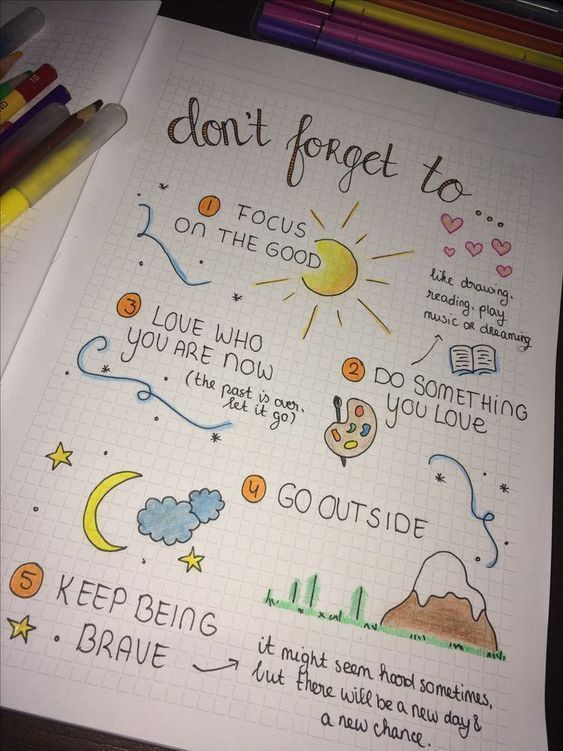 don't forget to...
1 FOCUS
ON THE GOOD
like drawing,
reading, play
music or dreaming
2 DO SOMETHING
YOU LOVE
3 LOVE WHO
YOU ARE NOW
(the past is over,
let it go)
4 GO OUTSIDE
5 KEEP BEING
BRAVE
it might seem hard sometimes,
but there will be a new day &
a new chance.